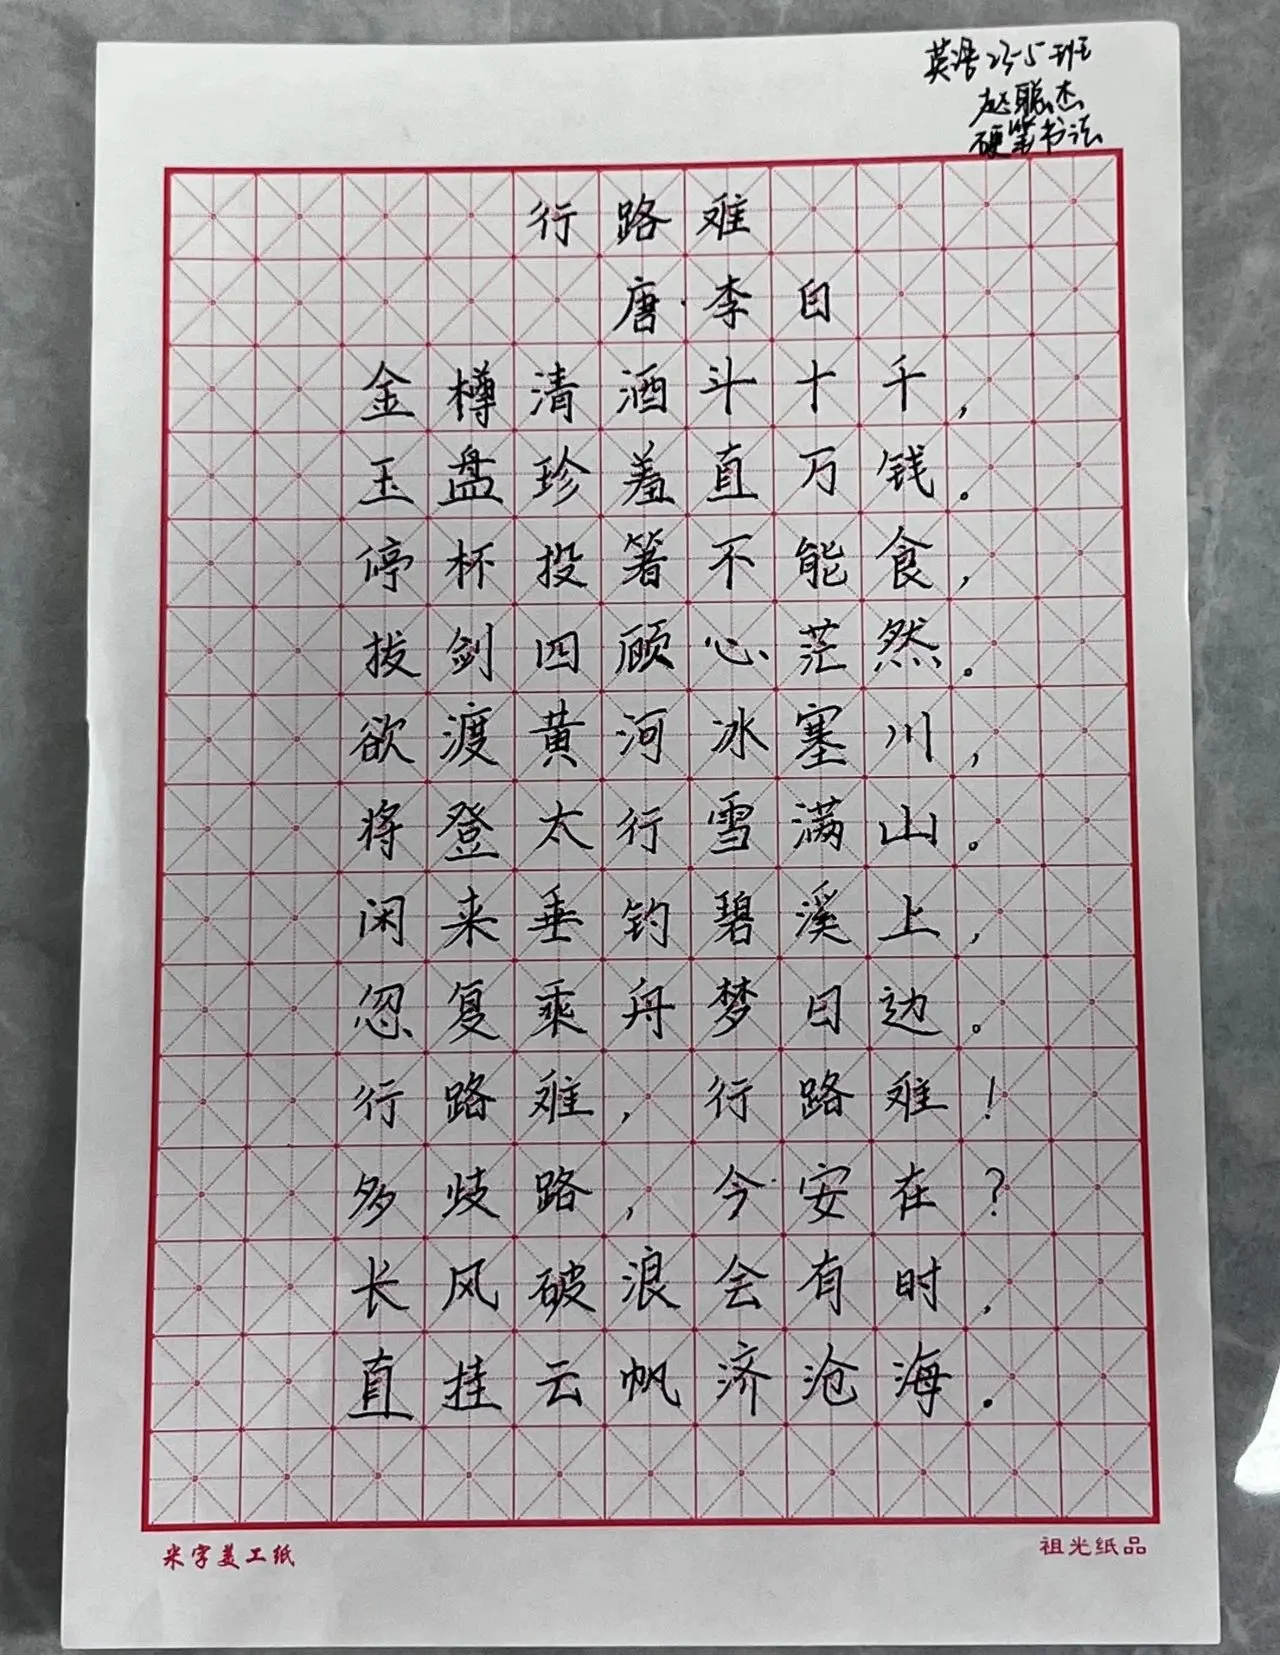 英语23-5班
赵聪杰
硬笔书法
行路难
唐·李白
金樽清酒斗十千，
玉盘珍羞直万钱。
停杯投箸不能食，
拔剑四顾心茫然。
欲渡黄河冰塞川，
将登太行雪满山。
闲来垂钓碧溪上，
忽复乘舟梦日边。
行路难，行路难！
多歧路，今安在？
长风破浪会有时，
直挂云帆济沧海。
米字美工纸
祖光纸品